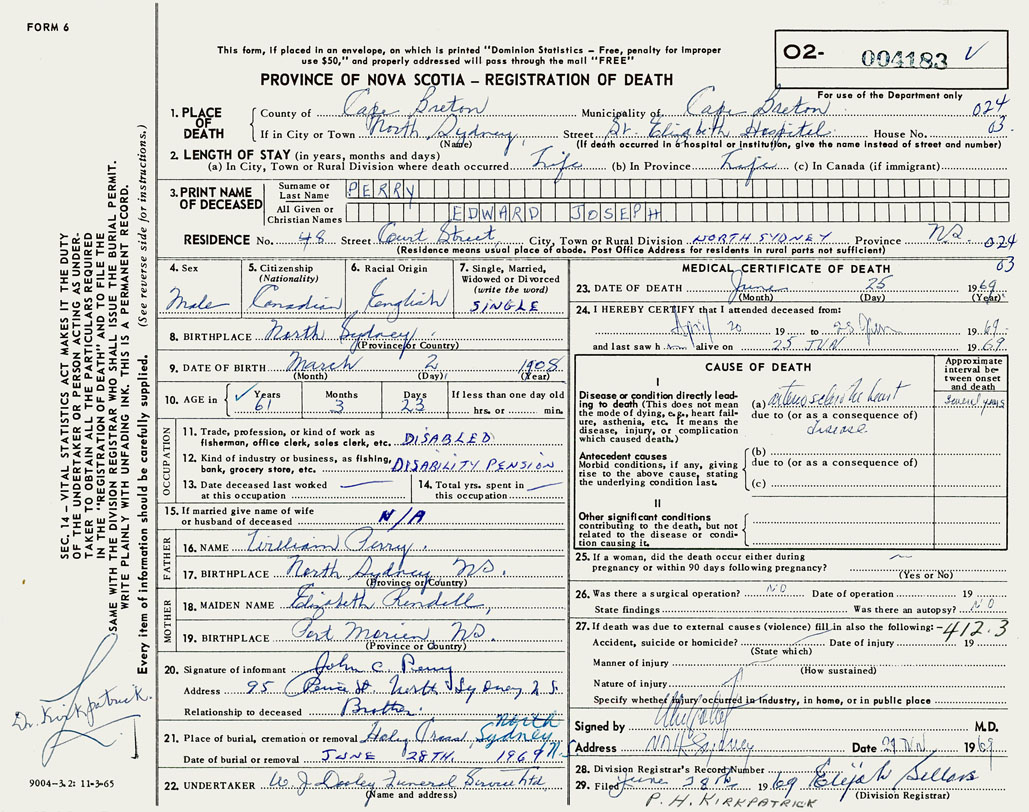 FORM 6
This form, if placed in an envelope, on which is printed "Dominion Statistics – Free, penalty for improper
use $50," and properly addressed will pass through the mail "FREE"
PROVINCE OF NOVA SCOTIA – REGISTRATION OF DEATH
O2- 004183 V
For use of the Department only
024
03
1. PLACE OF DEATH
County of Cape Breton Municipality of Cape Breton
If in City or Town North Sydney, Street St. Elizabeth Hospital House No.
(Name) (If death occurred in a hospital or institution, give the name instead of street and number)
2. LENGTH OF STAY (in years, months and days)
(a) In City, Town or Rural Division where death occurred Life (b) In Province Life (c) In Canada (if immigrant)
3. PRINT NAME OF DECEASED
Surname or Last Name PERRY
All Given or Christian Names EDWARD JOSEPH
RESIDENCE No. 48 Street Court Street, City, Town or Rural Division NORTH SYDNEY Province N.S. 024
(Residence means usual place of abode. Post Office Address for residents in rural parts not sufficient)
03
4. Sex Male
5. Citizenship (Nationality) Canadian
6. Racial Origin English
7. Single, Married, Widowed or Divorced (write the word) SINGLE
8. BIRTHPLACE North Sydney
(Province or Country)
9. DATE OF BIRTH March 2 1908
(Month) (Day) (Year)
10. AGE in Years 61 Months 3 Days 23 If less than one day old
hrs. or min.
OCCUPATION
11. Trade, profession, or kind of work as
fisherman, office clerk, sales clerk, etc. DISABLED
12. Kind of industry or business, as fishing,
bank, grocery store, etc. DISABILITY PENSION
13. Date deceased last worked
at this occupation
14. Total yrs. spent in
this occupation
15. If married give name of wife
or husband of deceased N/A
FATHER
16. NAME William Perry.
17. BIRTHPLACE North Sydney N.S.
(Province or Country)
MOTHER
18. MAIDEN NAME Elizabeth Rendell,
19. BIRTHPLACE Port Morien, N.S.
(Province or Country)
20. Signature of informant John C. Perry
Address 95 North Sydney N.S.
Relationship to deceased Brother.
21. Place of burial, cremation or removal Holy Cross, North Sydney N.S.
Date of burial or removal JUNE 28TH. 1969
22. UNDERTAKER W. J. Dooley Funeral Service Ltd
(Name and address)
MEDICAL CERTIFICATE OF DEATH
23. DATE OF DEATH June 25 1969
(Month) (Day) (Year)
24. I HEREBY CERTIFY that I attended deceased from:
April 20 19 to 25 June 1969
and last saw h alive on 25 JUN 1969
CAUSE OF DEATH
Approximate interval between onset and death
I
Disease or condition directly leading to death (This does not mean the mode of dying, e.g., heart failure, asthenia, etc. It means the disease, injury, or complication which caused death.)
(a) arteriosclerotic heart several years
due to (or as a consequence of)
disease
Antecedent causes
Morbid conditions, if any, giving rise to the above cause, stating the underlying condition last.
(b)
due to (or as a consequence of)
(c)
II
Other significant conditions
contributing to the death, but not related to the disease or condition causing it.
25. If a woman, did the death occur either during
pregnancy or within 90 days following pregnancy?
(Yes or No)
26. Was there a surgical operation? NO Date of operation 19
State findings Was there an autopsy? NO
27. If death was due to external causes (violence) fill in also the following: 412.3
Accident, suicide or homicide? Date of injury 19
(State which)
Manner of injury
(How sustained)
Nature of injury
Specify whether injury occurred in industry, in home, or in public place
Signed by M.D.
Address North Sydney Date 29 JUN 1969
28. Division Registrar's Record Number
29. Filed June 28th 1969 Elijah Sellars
(Division Registrar)
P. H. KIRKPATRICK
SEC. 14 – VITAL STATISTICS ACT MAKES IT THE DUTY
OF THE UNDERTAKER OR PERSON ACTING AS UNDER-
TAKER TO OBTAIN ALL THE PARTICULARS REQUIRED
IN THE "REGISTRATION OF DEATH" AND FILE THE
SAME WITH THE DIVISION REGISTRAR WHO SHALL ISSUE THE BURIAL PERMIT.
WRITE PLAINLY WITH UNFADING INK. THIS IS A PERMANENT RECORD.
Every item of information should be carefully supplied. (See reverse side for instructions.)
Dr. Kirkpatrick.
9004–3.2: 11-3-65